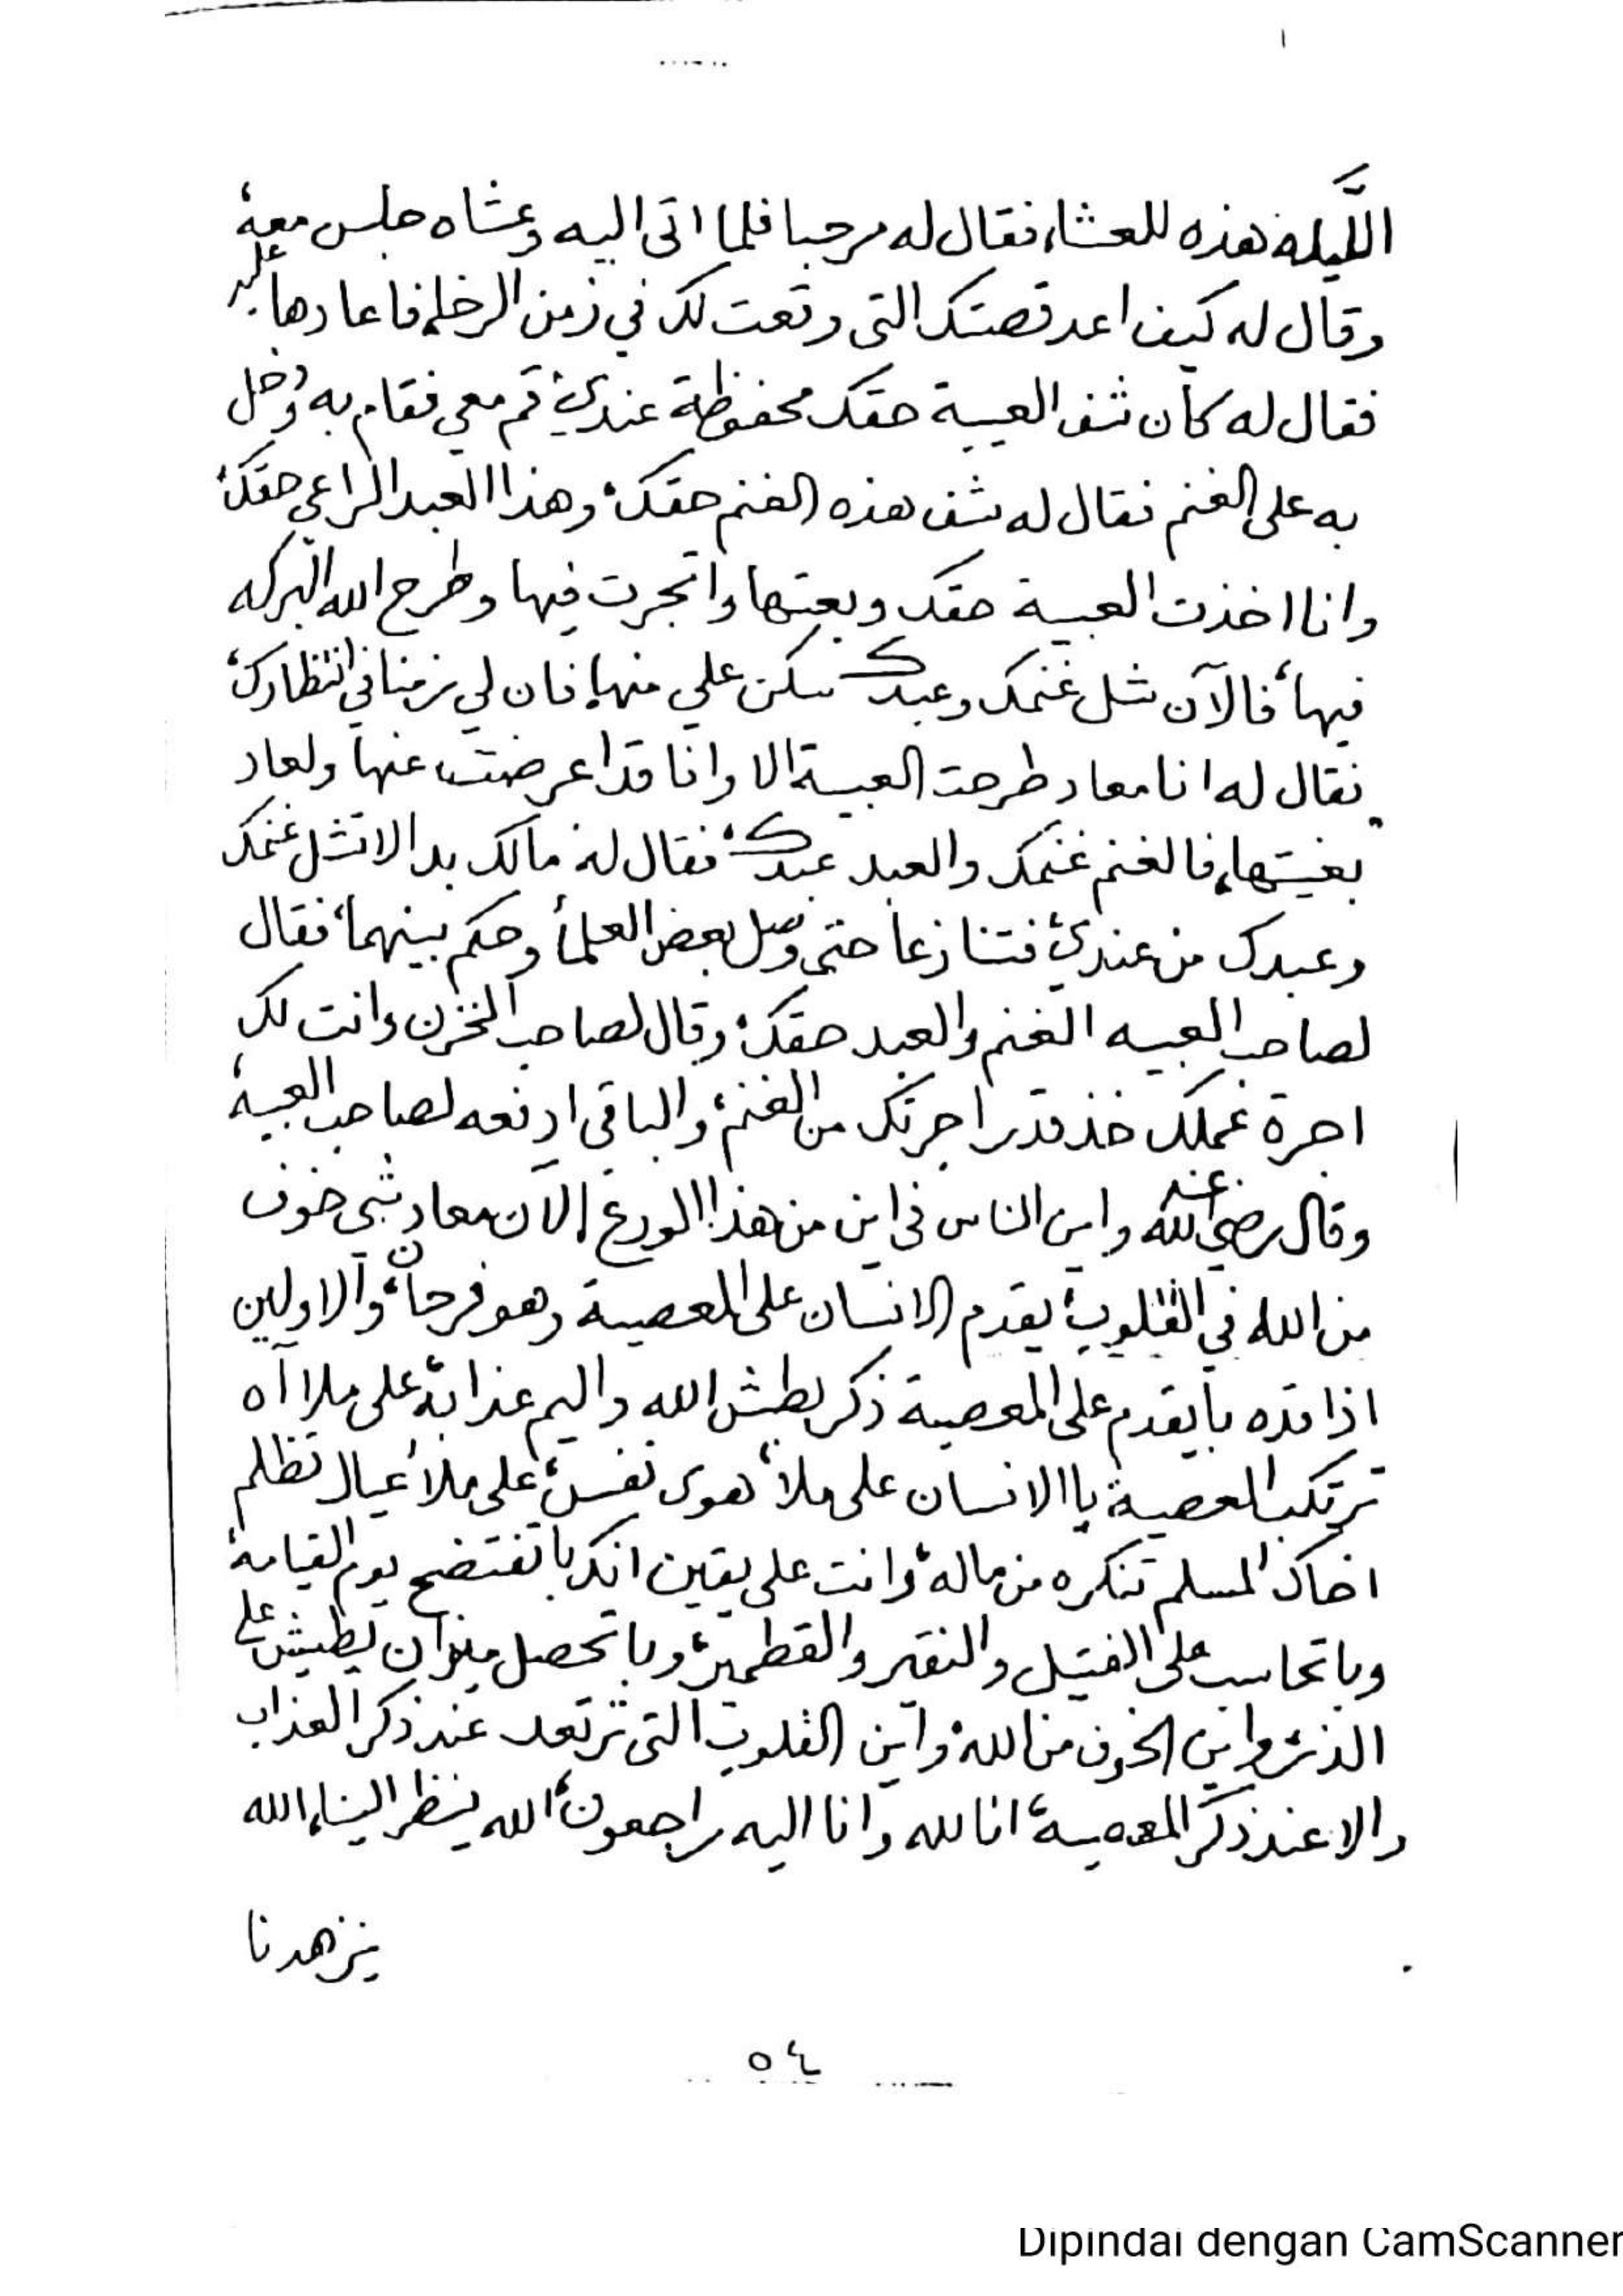 الليلة هذه للعشاء فقال له مرحبا فلما اتى اليه وعشاه جلس معه
وقال له كيف اعد قصتك التي وقعت لك في زمن الرخلة فاعادها عليه
فقال له كأن شف العيبة حقك محفوظة عندي قم معي فقام به ودخل
به على الغنم فقال له شف هذه الغنم حقك وهذا العبد الراعي حقك
وانا اخذت العيبة حقك وبعتها واتجرت فيها وطرح الله البركه
فيها فالآن شل غنمك وعبدك سكن علي منها فان لي زمنا في انتظارك
فقال له انا معاد طرحت العيبة الا وانا قد اعرضت عنها ولعاد
بغيتها، فالغنم غنمك والعبد عبدك فقال له مالك بد الا تشل غنمك
وعبدك من عندي فتنازعا حتى وصل بعض العلماء وحكم بينهما، فقال
لصاحب العيبه الغنم والعبد حقك وقال لصاحب المخزن وانت لك
اجرة عملك خذ قدر اجرتك من الغنم، والباقي ادفعه لصاحب العيبة
وقال رضي الله عنه واين الناس في اين من هذا الورع الآن معاد شي خوف
من الله في القلوب يقدم الانسان على المعصية وهو فرحان، والاولين
اذا قده بايقدم على المعصية ذكر بطش الله واليم عذابه على ملا آه
ترتكب المعصية يا الانسان على ملا هوى نفس، على ملا عيال تظلم
اخاك المسلم تنكره من ماله وانت على يقين انك با تفتضح يوم القيامة
وباتحاسب على الفتيل والنقير والقطمير، وباتحصل ميزان يطيش على
الذر، واين الخوف من الله واين القلوب التي ترتعد عند ذكر العذاب
والا عند ذكر المعصية، انا لله وانا اليه راجعون، الله ينظر الينا، الله
يزهدنا
٥٤
Dipindai dengan CamScanner